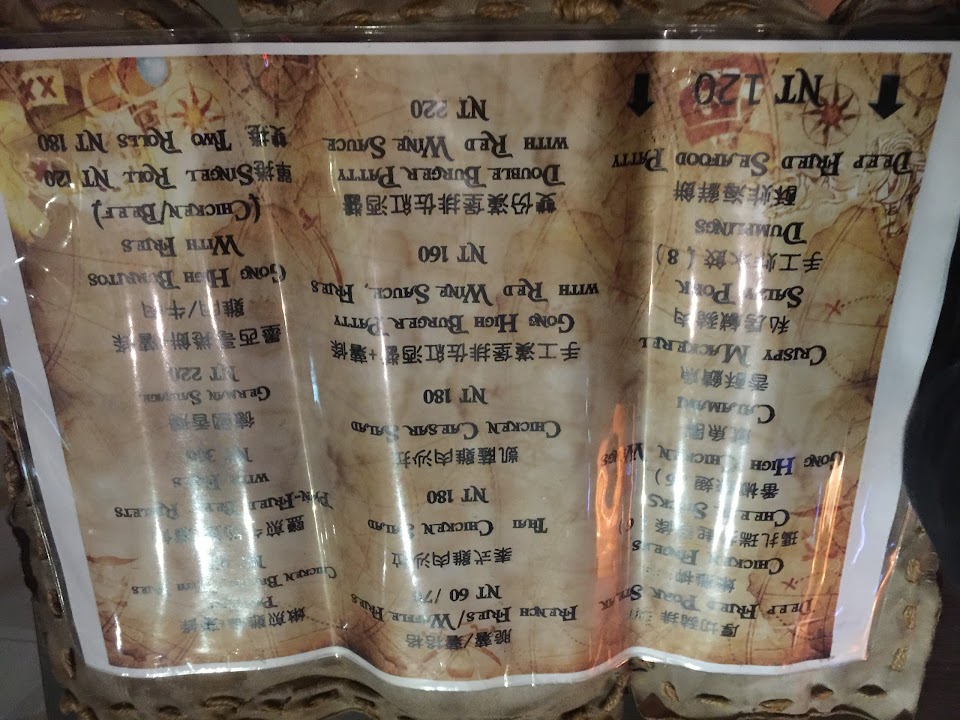 厚切豬排
Deep Fried Pork Steak
Chicken Fingers
瑪扎瑞
Cheese Sticks
Gong High Chicken Wings
魷魚圈
Calamari
香酥鯖魚
Crispy Mackerel
私房鹹豬肉
Salty Pork
手工炸水餃 (8)
Dumplings
酥炸海鮮餅
Deep Fried Seafood Patty
NT 120
脆薯/薯格格
French Fries/Waffle Fries
NT 60 /
泰式雞肉沙拉
Thai Chicken Salad
NT 180
凱薩雞肉沙拉
Chicken Caesar Salad
NT 180
手工漢堡排佐紅酒醬+薯條
Gong High Burger Patty
with Red Wine Sauce, Fries
NT 160
雙份漢堡排佐紅酒醬
Double Burger Patty
with Red Wine Sauce
NT 220
嫩煎雞
Chicken Breast with Fries
鹽煎牛
Pan-Fried Beef
with Fries
德國香腸
German Sausage
NT 220
墨西哥捲餅+薯條
雞肉/牛肉
Gong High Burritos
With Fries
(Chicken/Beef)
單捲Singel Roll NT 120
雙捲 Two Rolls NT 180